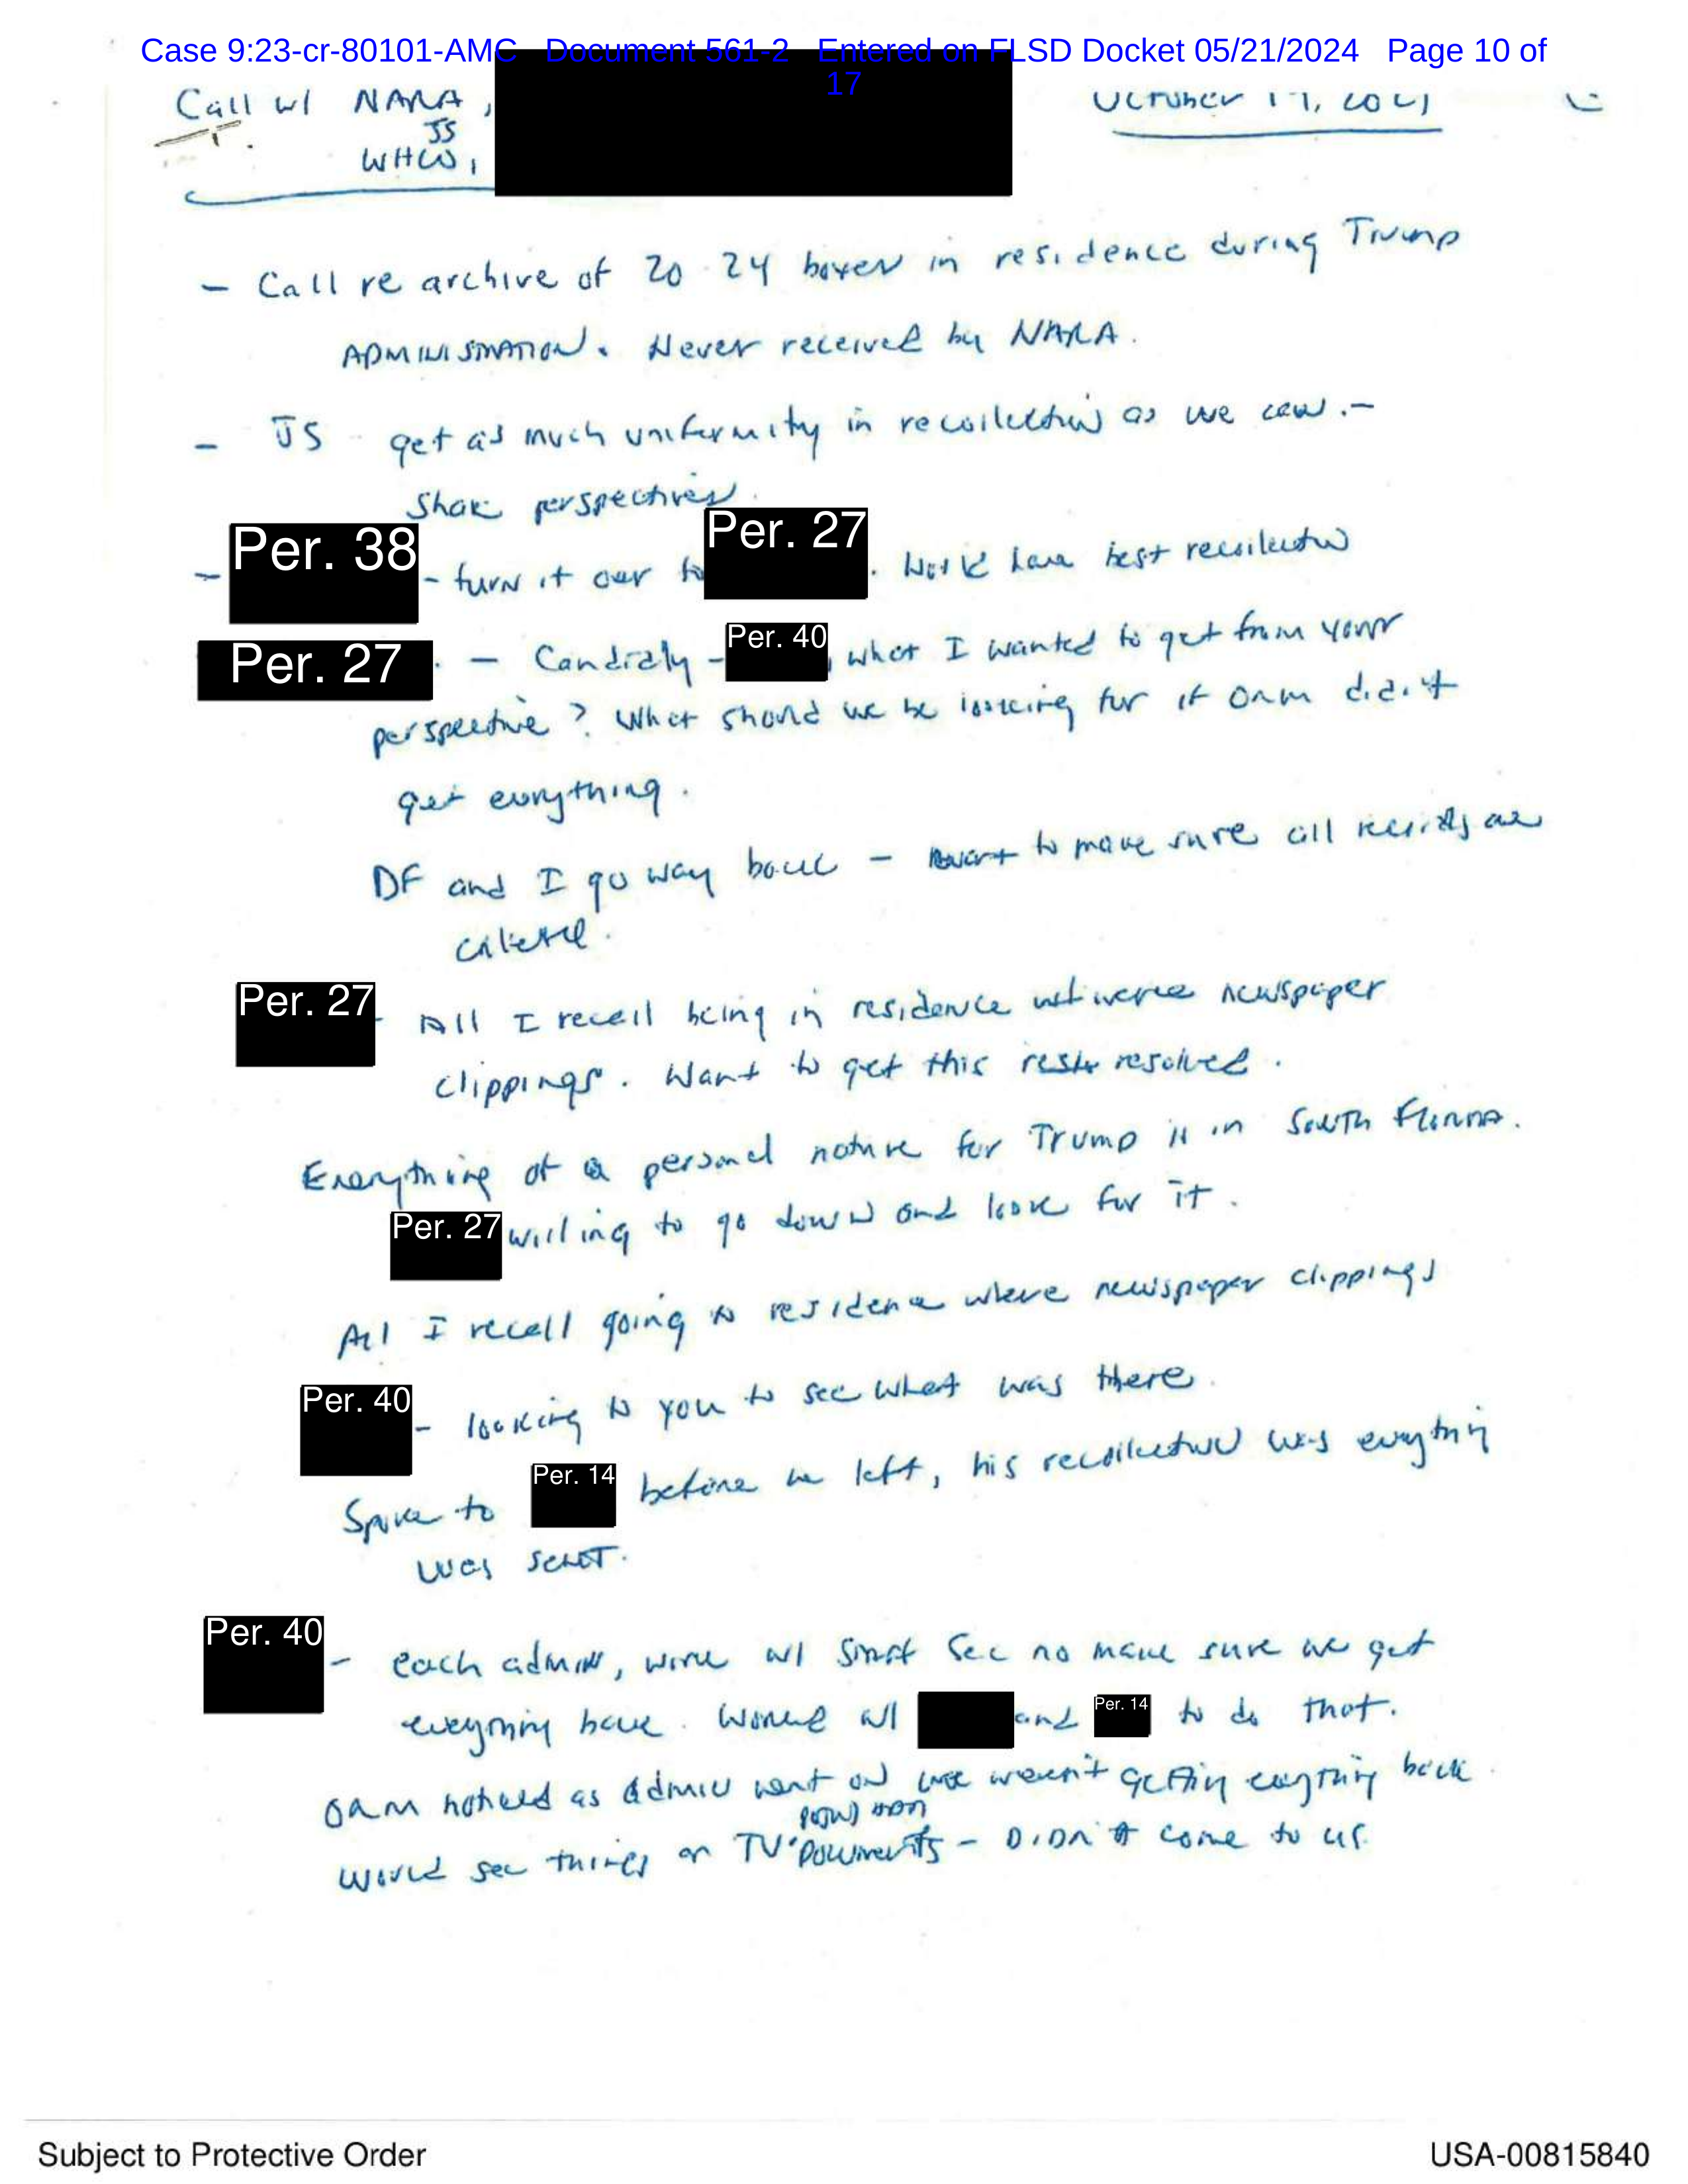 Case 9:23-cr-80101-AMC Document 561-2 Entered on FLSD Docket 05/21/2024 Page 10 of
17
Call w/ NARA,
JS
WHCO,
October 19, 2021
- Call re archive of 20-24 boxes in residence during Trump
ADMINISTRATION. Never received by NARA.
- JS - get as much uniformity in recollection as we can. -
Share perspectives.
- Per. 38 - turn it over to Per. 27. Would have best recollection
Per. 27 - Candidly - Per. 40, what I wanted to get from your
perspective? What should we be looking for if ORM didn't
get everything.
DF and I go way back - want to make sure all records are
Per. 27 - All I recall being in residence were newspaper
clippings. Want to get this resolved.
Everything of a personal nature for Trump is in South Florida.
Per. 27 willing to go down and look for it.
All I recall going to residence where newspaper clippings
Per. 40 - looking to you to see what was there.
Spoke to Per. 14 before he left, his recollection was everything
was sent.
Per. 40 - each admin, work w/ Staff Sec to make sure we get
everything back. Worked w/ and Per. 14 to do that.
ORM noticed as Admin went on we weren't getting everything back.
Would see things on TV. Documents - Didn't come to us.
Subject to Protective Order
USA-00815840